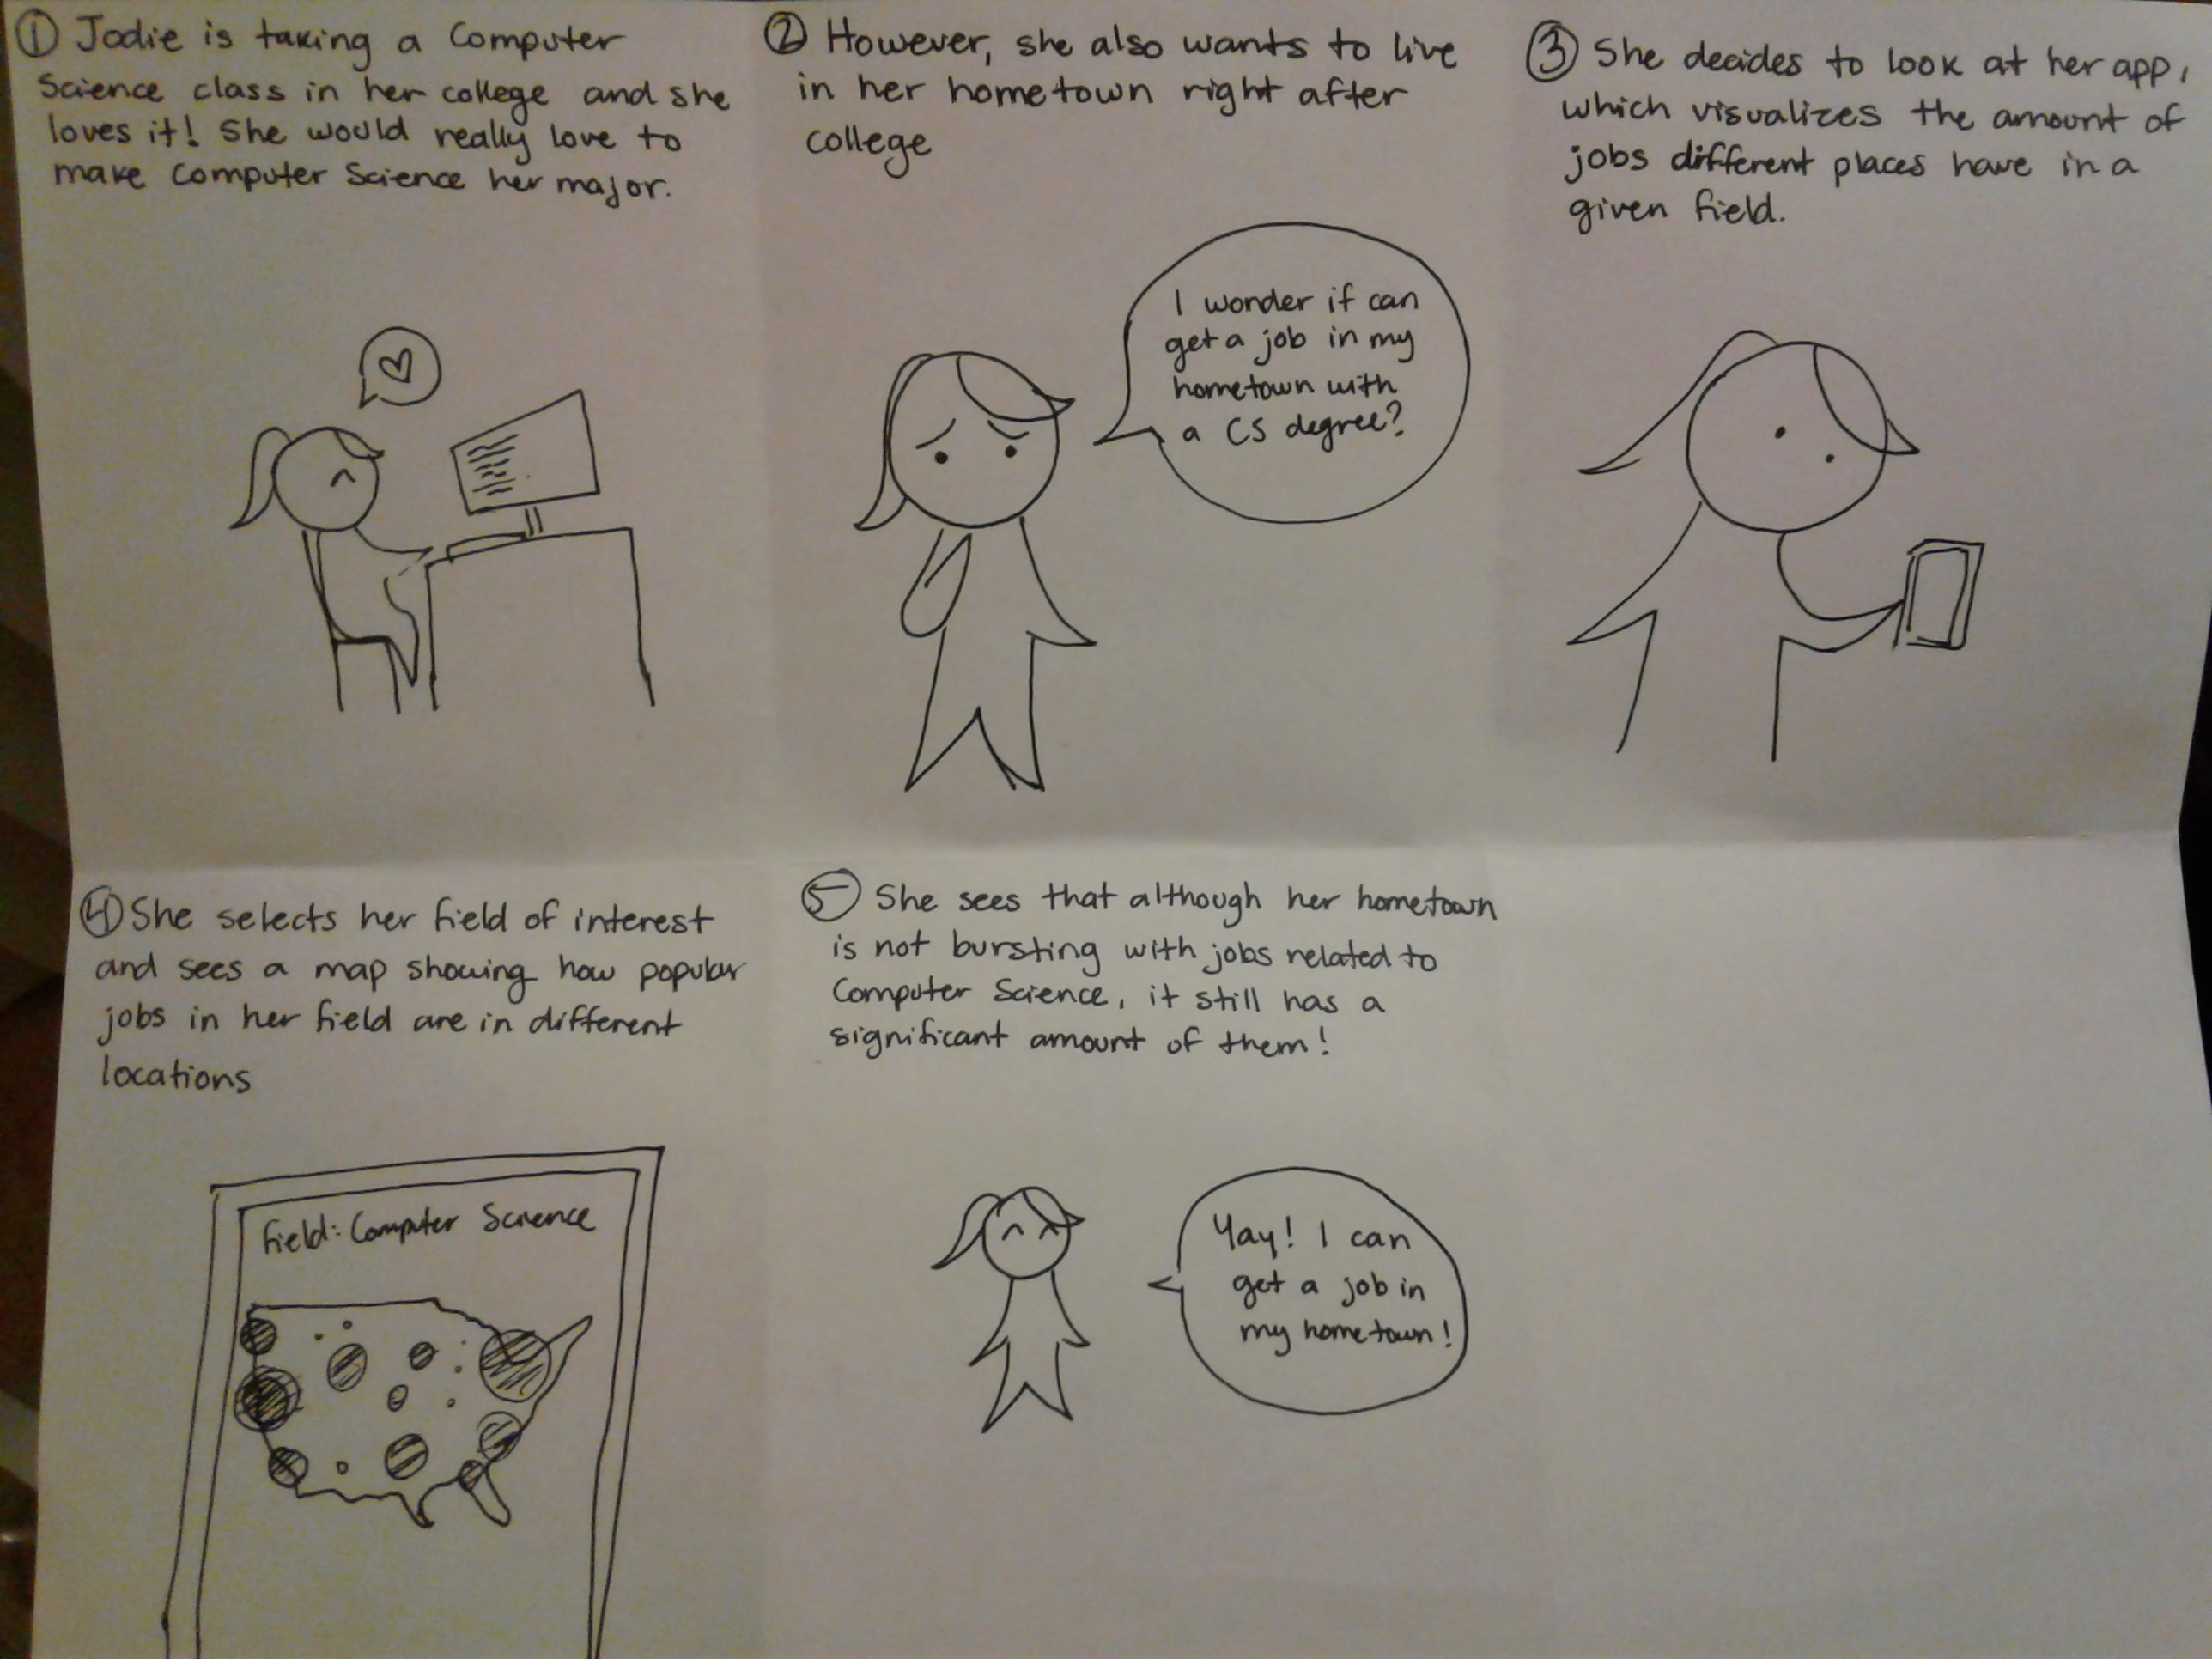 ① Jodie is taking a computer
science class in her college and she
loves it! She would really love to
make computer science her major.
② However, she also wants to live
in her hometown right after
college
I wonder if can
get a job in my
hometown with
a CS degree?
③ She decides to look at her app,
which visualizes the amount of
jobs different places have in a
given field.
④ She selects her field of interest
and sees a map showing how popular
jobs in her field are in different
locations
field: Computer Science
⑤ She sees that although her hometown
is not bursting with jobs related to
Computer Science, it still has a
significant amount of them!
Yay! I can
get a job in
my hometown!